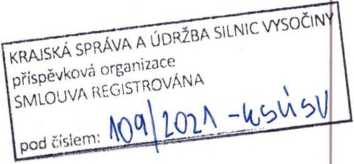 KRAJSKÁ SPRÁVA A ÚDRŽBA SILNIC VYSOČINY
příspěvková organizace
SMLOUVA REGISTROVÁNA
pod číslem: 109/2021-KSÚSV